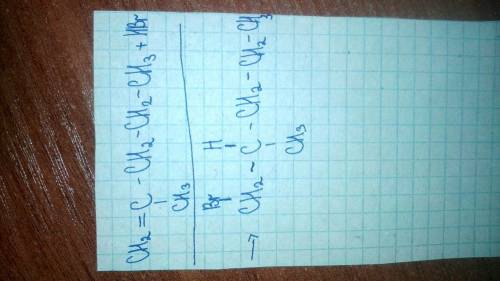 CH₂=C-CH₂-CH₂-CH₃+HBr
CH₃
Br H
→ CH₂-C-CH₂-CH₂-CH₃
CH₃